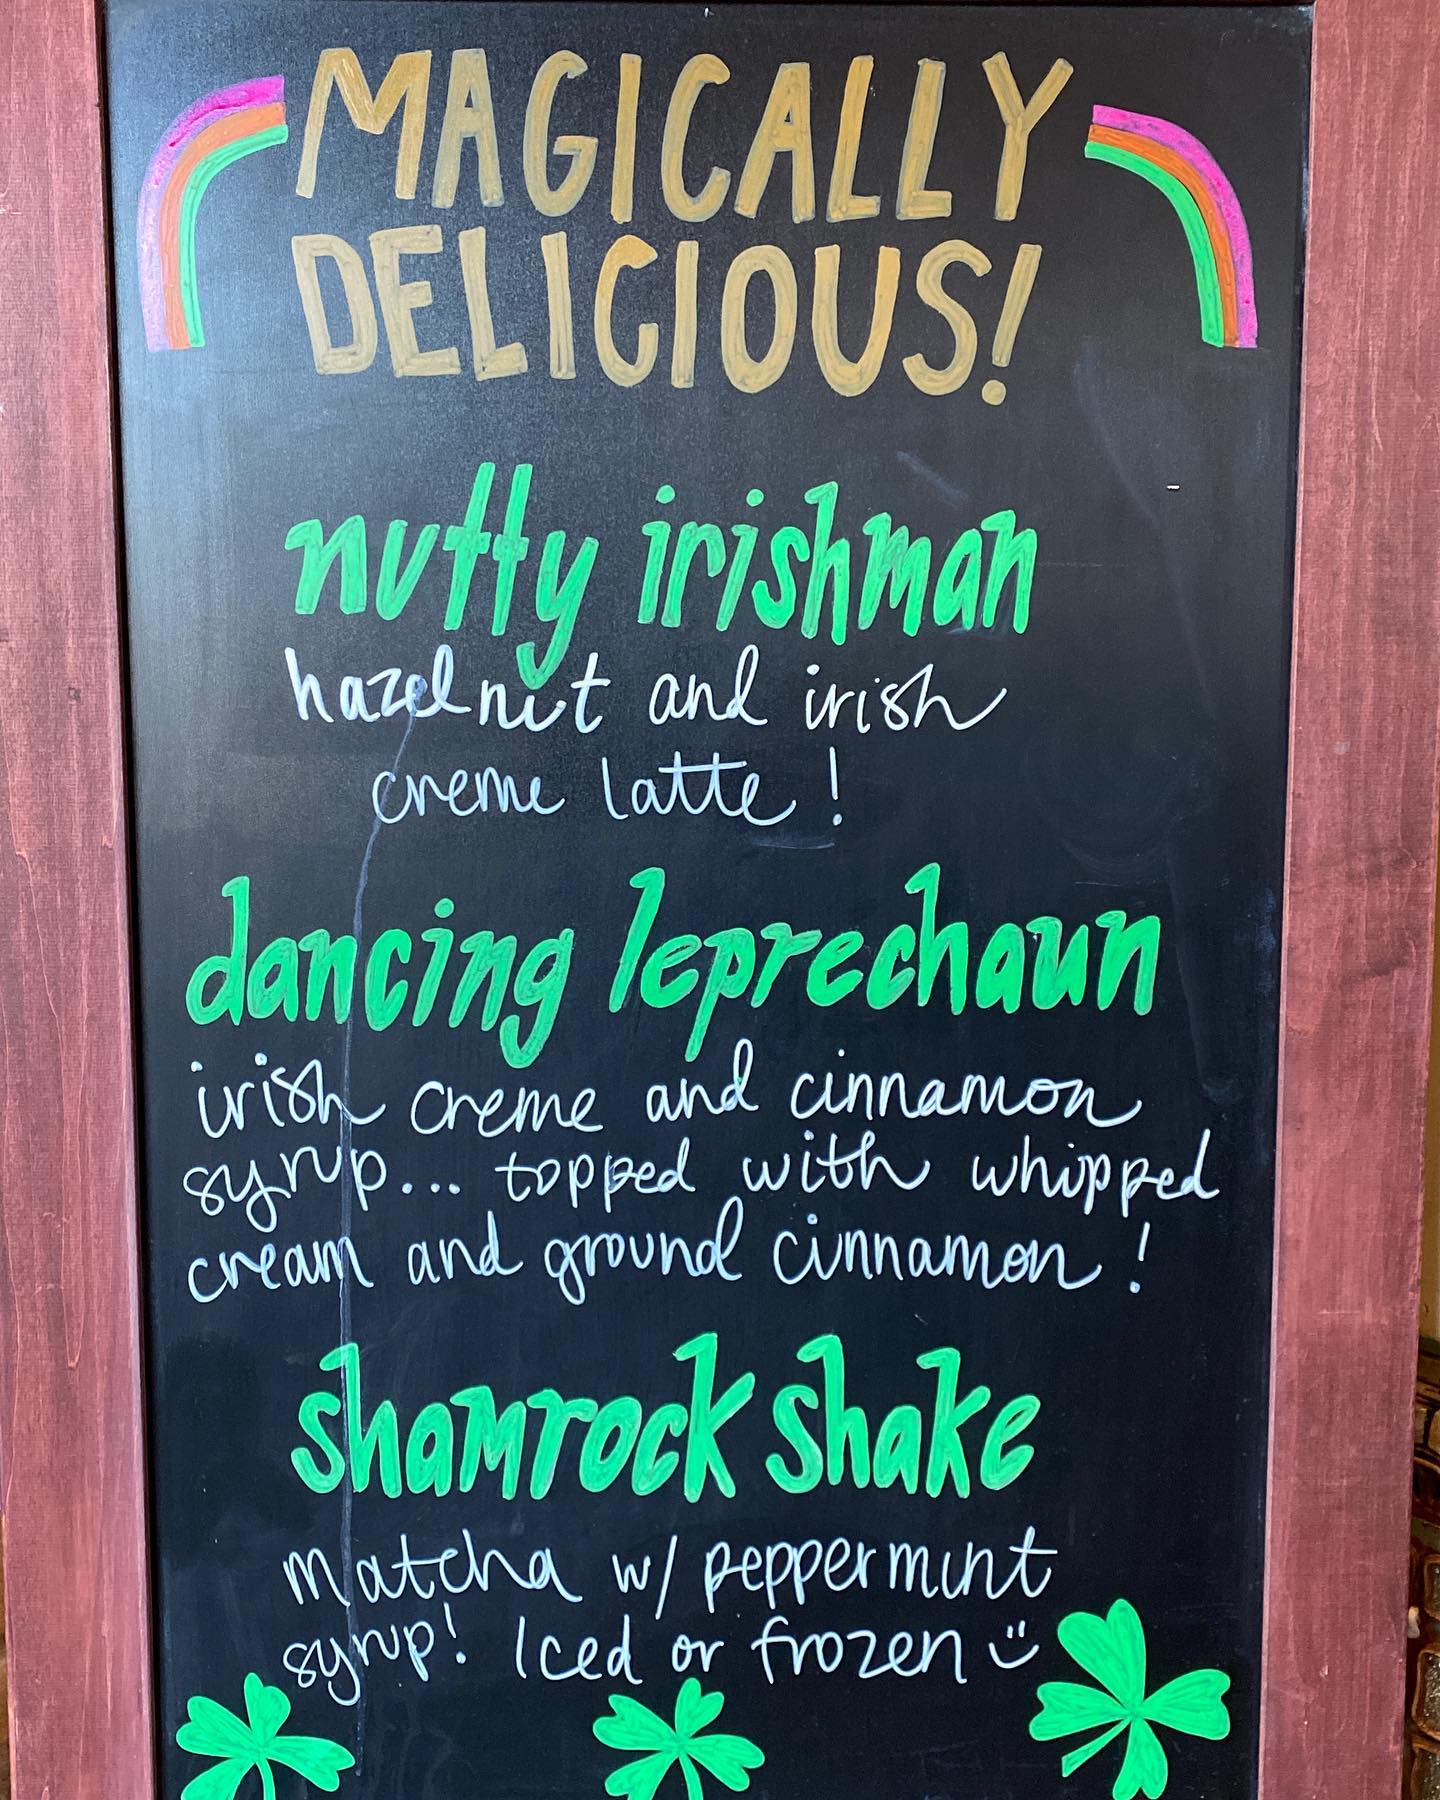 MAGICALLY
DELICIOUS!
nutty irishman
hazelnut and irish
creme latte!
dancing leprechaun
irish creme and cinnamon
syrup... topped with whipped
cream and ground cinnamon!
shamrock shake
Matcha w/ peppermint
syrup! Iced or frozen